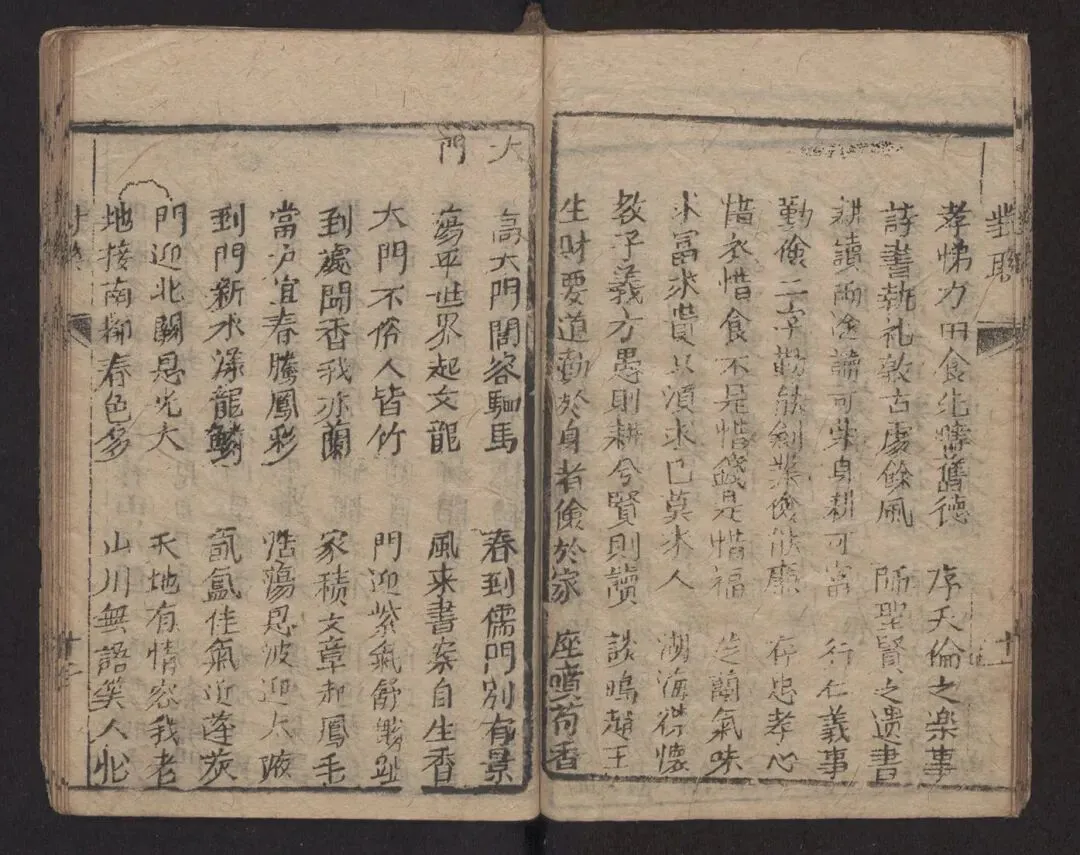 對聯
孝悌力田食先疇舊德 序天倫之楽事
詩書執礼敦古處餘風 師聖賢之遗書
耕讀両途讀可荣身耕可富 行仁義事
勤儉二字勤能創業儉能廉 存忠孝心
惜衣惜食不是惜錢是惜福 芝蘭氣味
求冨求貴只須求己莫求人 湖海襟懷
教子義方愚則耕兮賢則讀 談鳴趙王
生財要道勤於身者儉於家 座噴荀香
十一
大門
高大門閭容駟馬 春到儒門別有景
蕩平世界起文龍 風來書案自生香
大門不俗人皆竹 門迎紫氣舒
到處聞香我亦蘭 家積文章起鳳毛
當户宜春騰鳳彩 浩蕩恩波迎大
到門新水漾龍鱗 氤氳佳氣近蓬莱
門迎北闕恩光大 天地有情容我老
地接南柳春色多 山川無語笑人忙